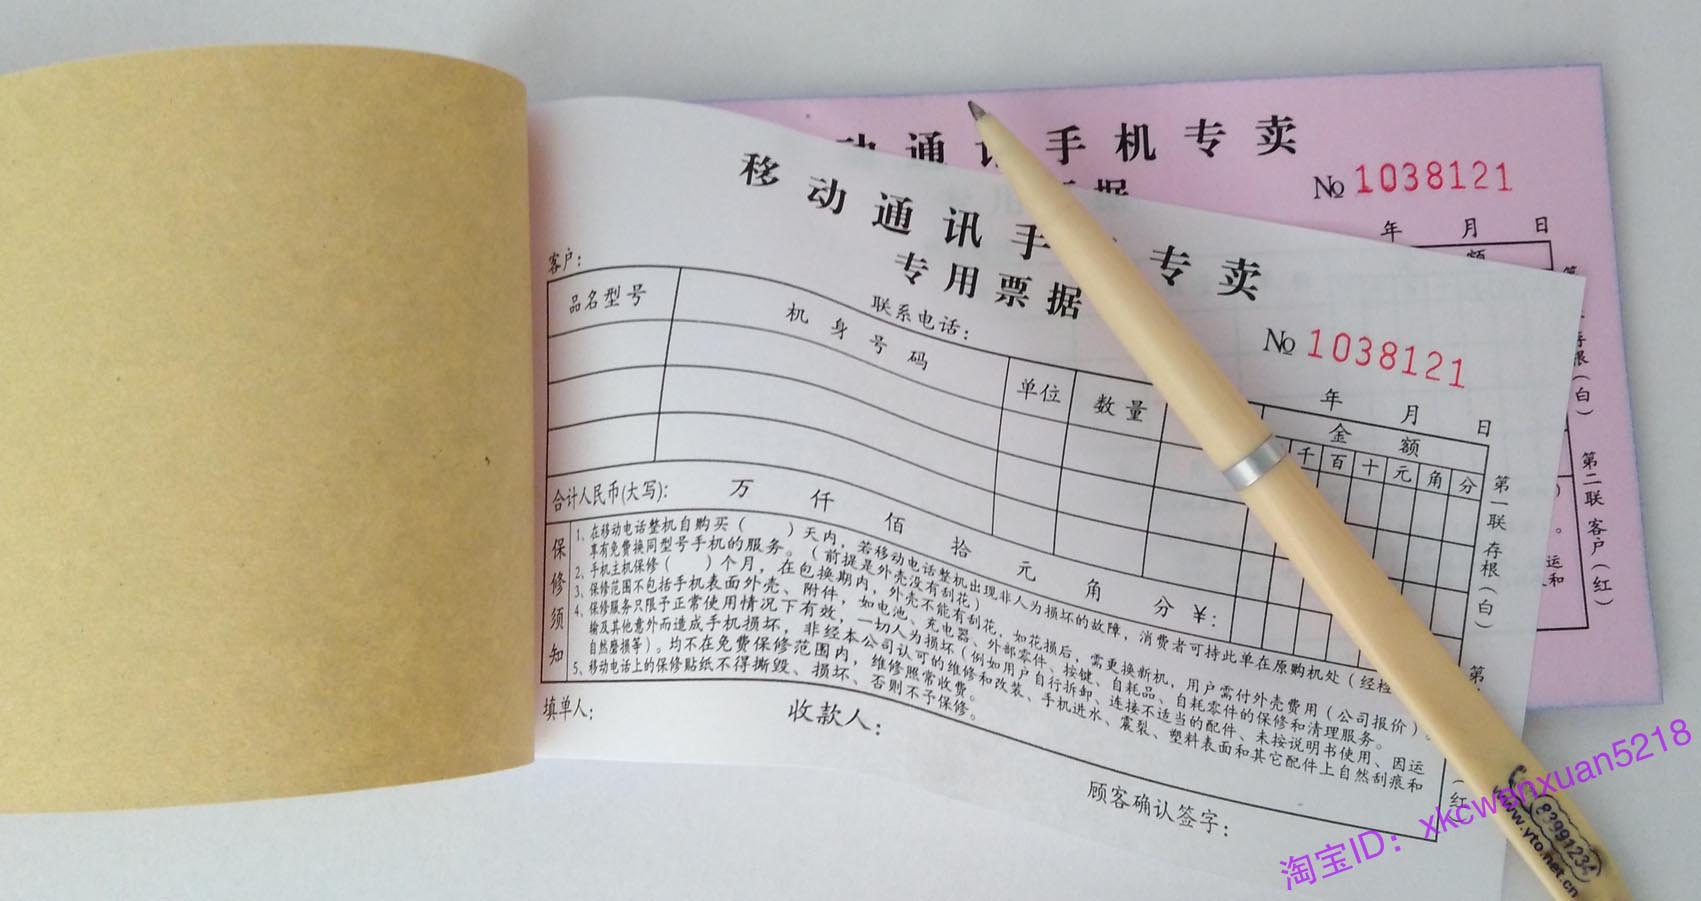 动 通 讯 手 机 专 卖
据
№ 1038121
年 月 日
额
第二联 客户(红)
移 动 通 讯 手 专 卖
专 用 票 据
客户:
联系电话:
№ 1038121
年 月 日
品名型号 机 身 号 码 单位 数 量 金 额
千 百 十 元 角 分
合计人民币(大写): 万 仟 佰 拾 元 角 分 ¥:
保修须知
1、在移动电话整机自购买( )天内,若移动电话整机出现非人为损坏的故障,消费者可持此单在原购机处(经检
享有免费换同型号手机的服务。(前提是外壳没有刮花)
2、手机主机保修( )个月,在包换期内,外壳不能有刮花,如花损后,需更换新机,用户需付外壳费用(公司报价)。
3、保修范围不包括手机表面外壳、附件,如电池、充电器、外部零件、按键、自耗品、自耗零件的保修和清理服务。
4、保修服务只限予正常使用情况下有效,一切人为损坏(例如用户自行拆卸、连接不适当的配件、未按说明书使用、因运
输及其他意外而造成手机损坏,非经本公司认可的维修和改装、手机进水、震裂、塑料表面和其它配件上自然刮痕和
自然磨损等)。均不在免费保修范围内,维修照常收费。
5、移动电话上的保修贴纸不得撕毁、损坏、否则不予保修。
第一联 存根(白)
填单人:
收款人:
顾客确认签字:
83991234
www.yto.net.cn
淘宝ID:xkcwanxuan5218